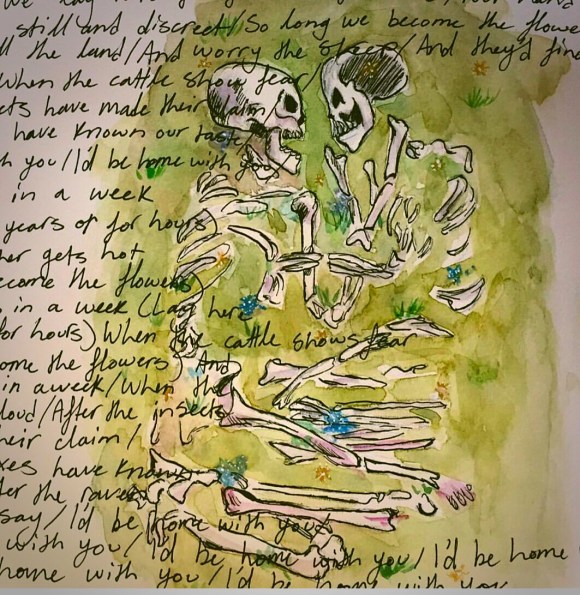 still and discreet/So long we become the flowe
ll the land/And worry the sheep/And they'd fin
When the cattle show fear
cts have made their claim
have known our taste
h you/I'd be home with you
in a week
years of for hours
her gets hot
ecome the flowers
in a week (Lay here
for hours) When the cattle shows fear
ome the flowers) And
in a week/When the
loud/After the insects
heir claim/
xes have known
ter the raven
say/I'd be home with you/
with you/I'd be home with you/I'd be home
home with you/I'd be home with you